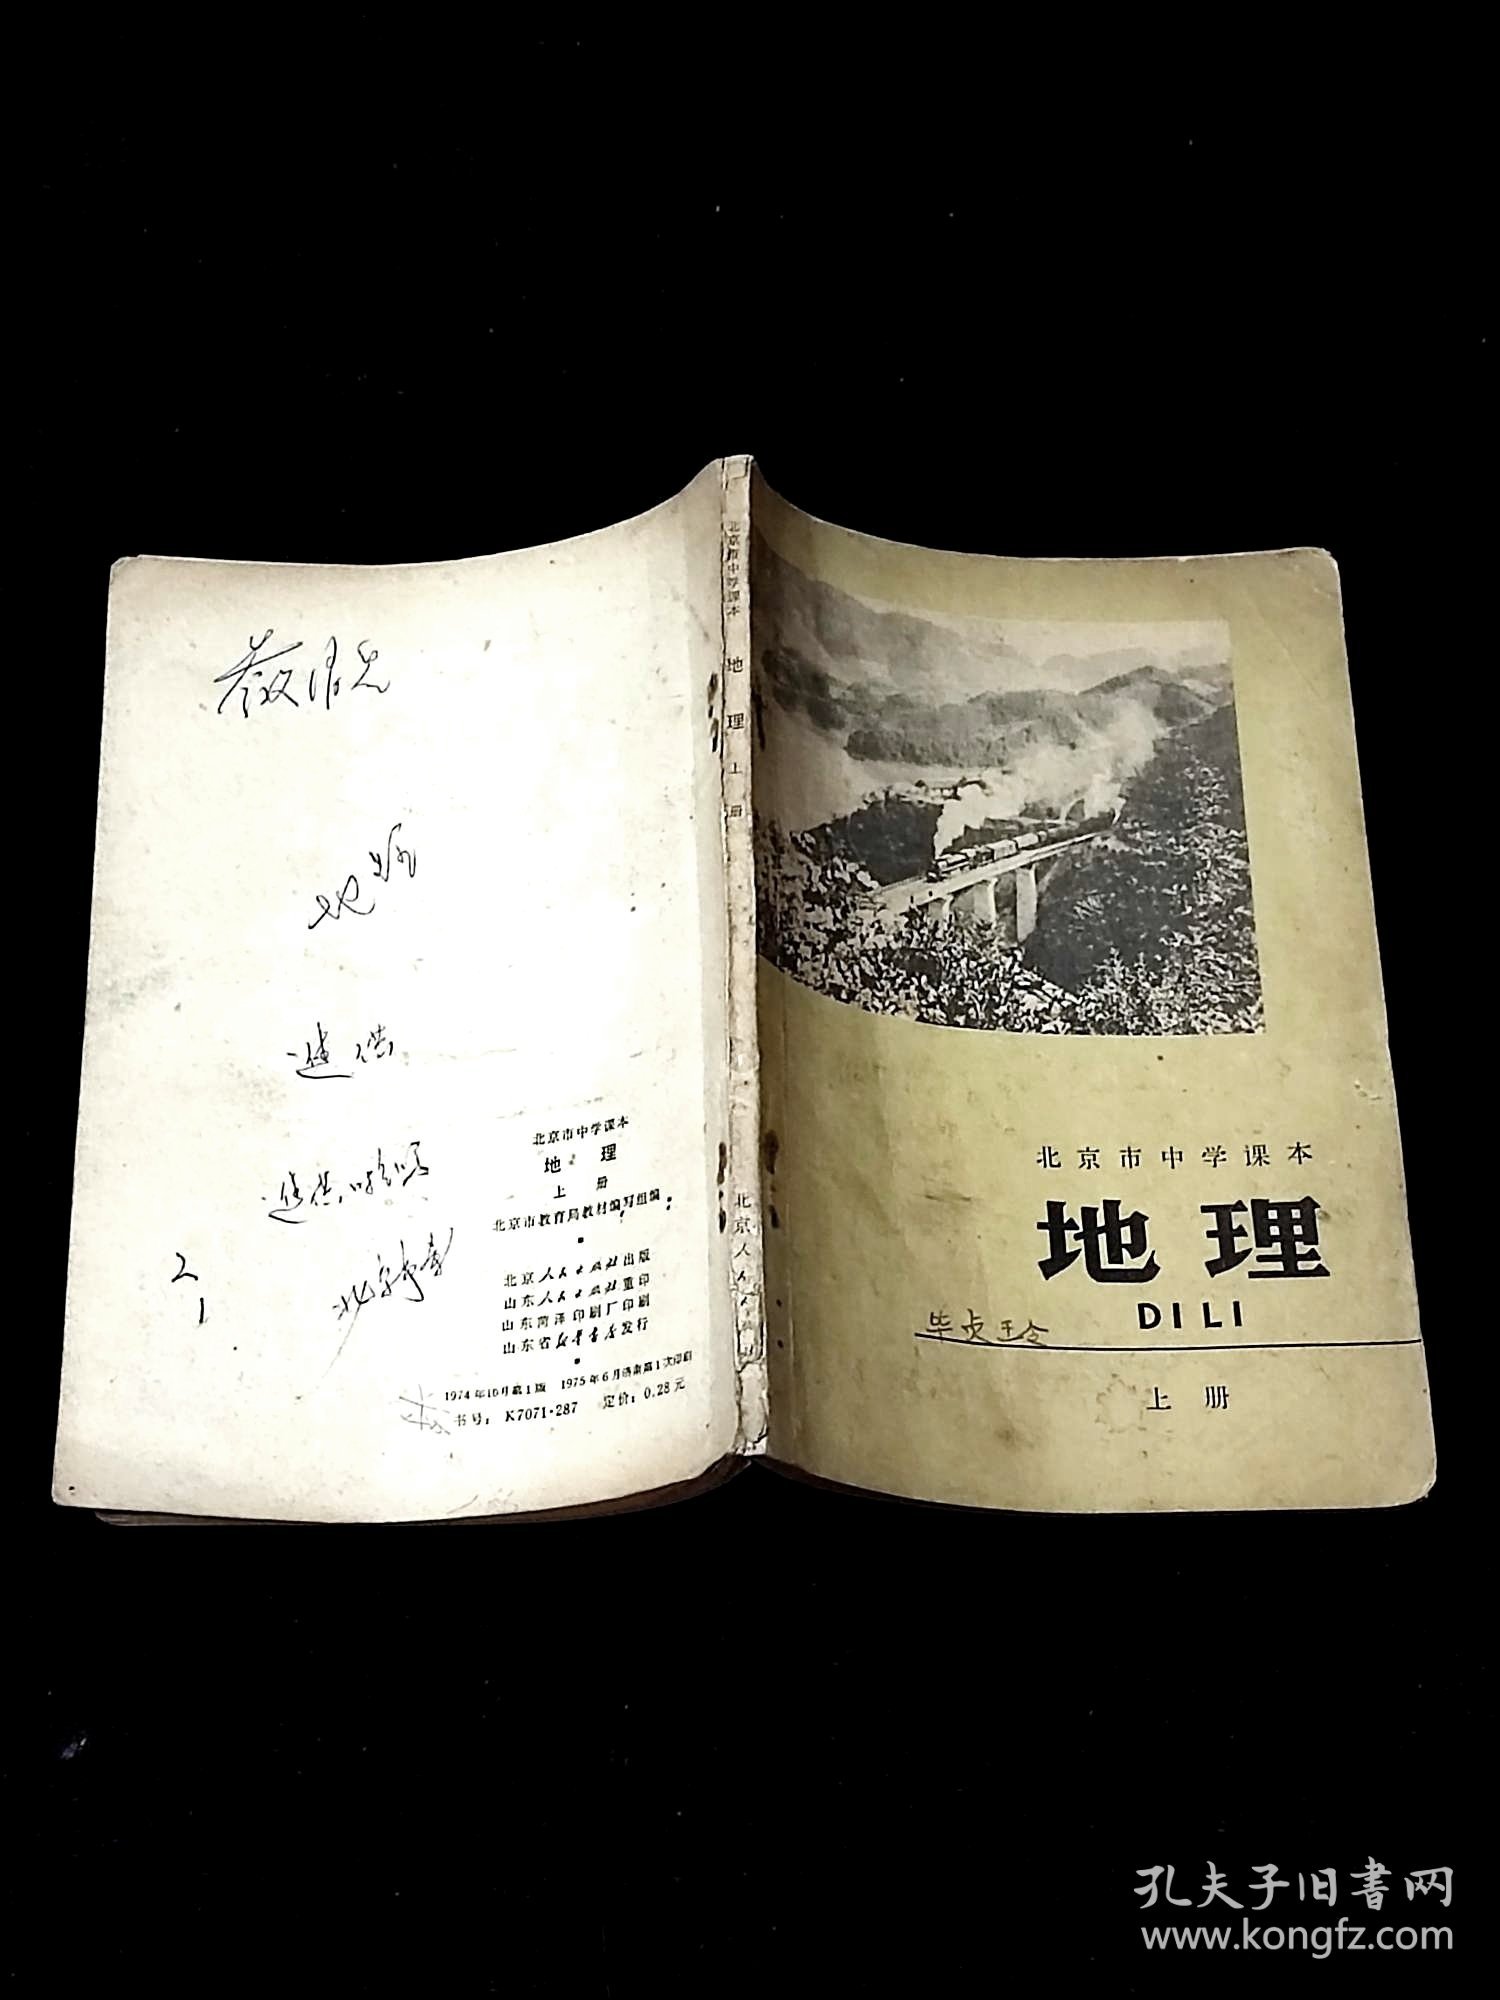 北京市中学课本
地理
上册
北京市教育局教材编写组编
北京人民出版社出版
山东人民出版社重印
山东菏泽印刷厂印刷
山东省新华书店发行
1974年10月第1版 1975年6月济南第1次印刷
书号：K7071·287 定价：0.28元
2
1
北京市中学课本 地理 上册
北京人
北京市中学课本
地理
DILI
毕贞玲
上册
孔夫子旧书网
www.kongfz.com